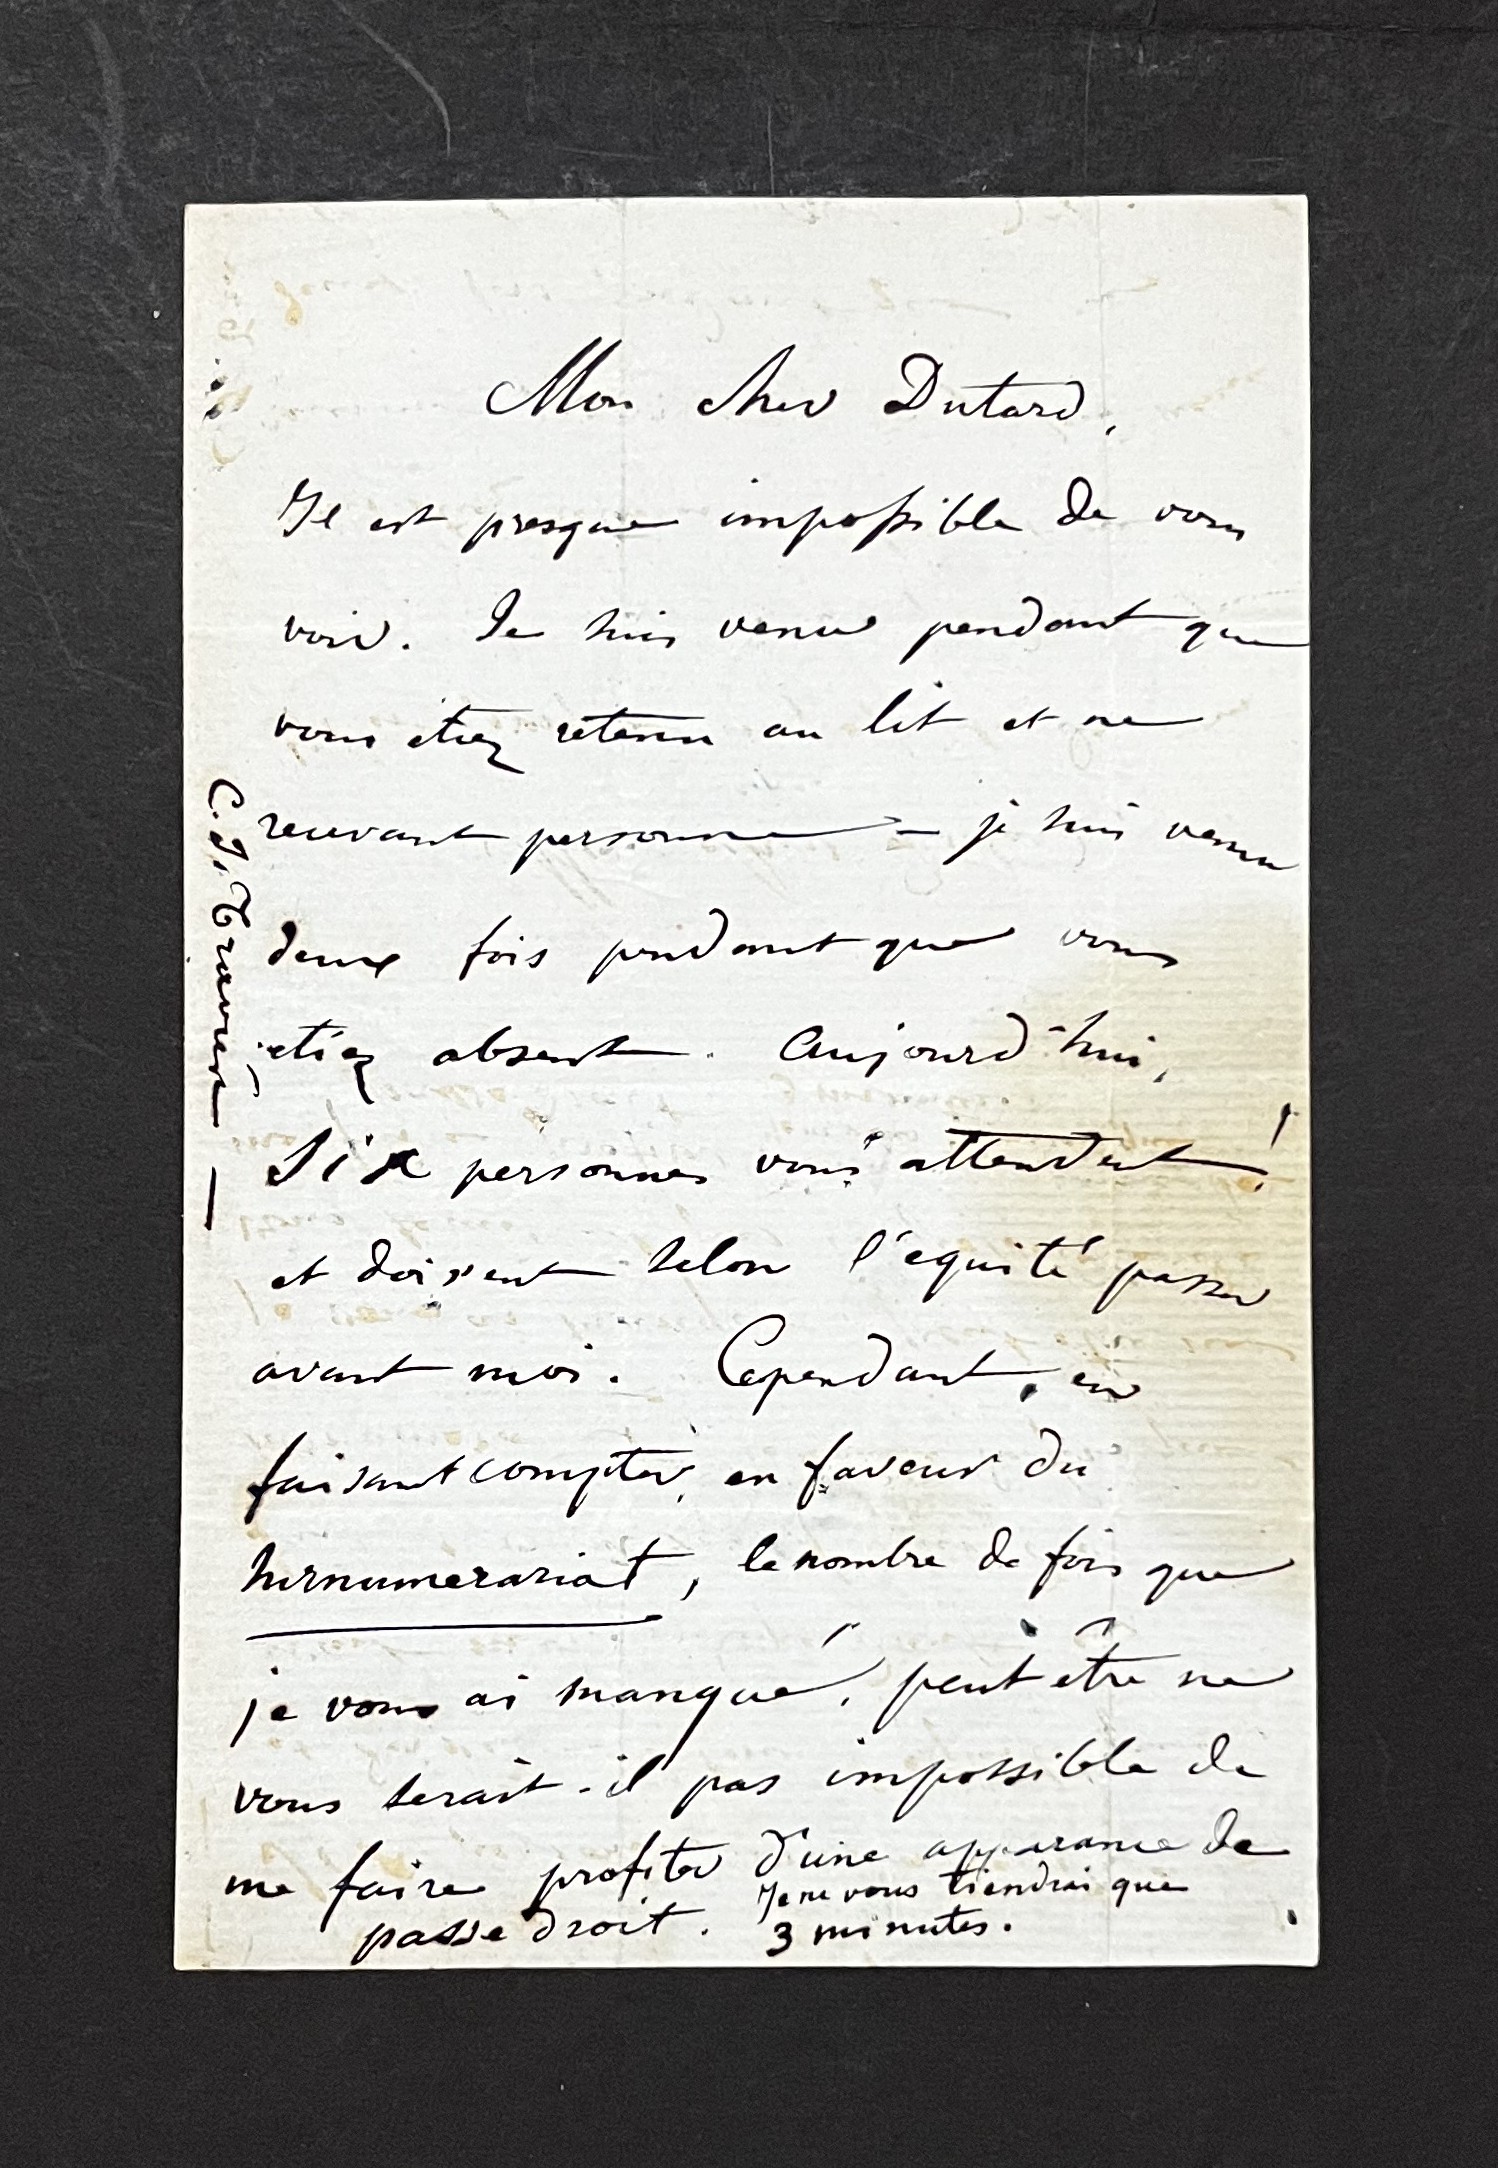 Mon cher Dutard,
Il est presque impossible de vous
voir. Je suis venu pendant que
vous etiez retenu au lit et ne
recevant personne – je suis venu
deux fois pendant que vous
etiez absent. Aujourd'hui,
Six personnes vous attendent!
et doivent selon l'equité passer
avant moi. Cependant, en
faisant compter, en faveur du
surnumerariat, le nombre de fois que
je vous ai manqué, peut être ne
vous serait-il pas impossible de
me faire profiter d'une apparance de
passe droit. Je ne vous tiendrai que
3 minutes.
C. J. Traviès